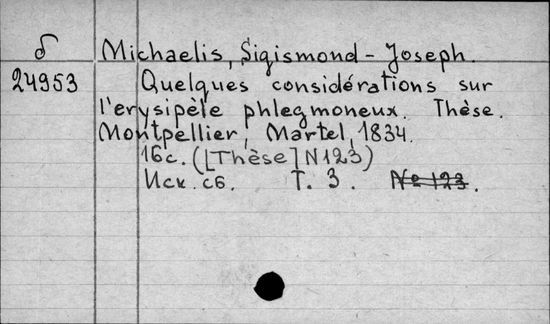 б Michaelis, Sigismond-Joseph.
24953 Quelques considérations sur
l'erysipèle phlegmoneux. Thèse.
Montpellier, Martel, 1834.
16c. ([Thèse] N123)
Иск. сб. Т. 3. № 123.